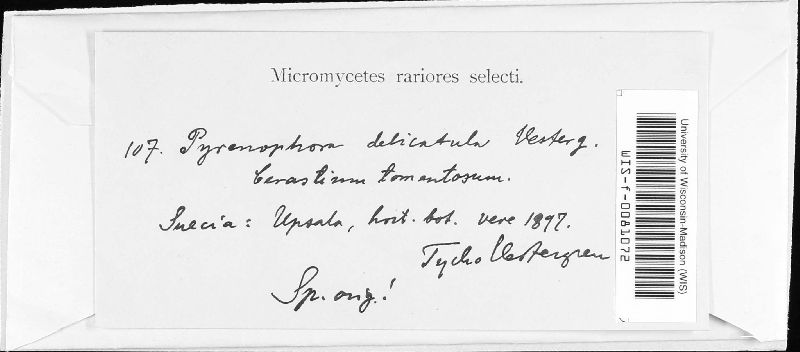 Micromycetes rariores selecti.
107. Pyrenophora delicatula Vesterg.
Cerastium tomentosum.
Suecia: Upsala, hort. bot. vere 1897.
Tycho Vestergren
Sp. orig.!
University of Wisconsin-Madison (WIS)
WIS-f-0081072